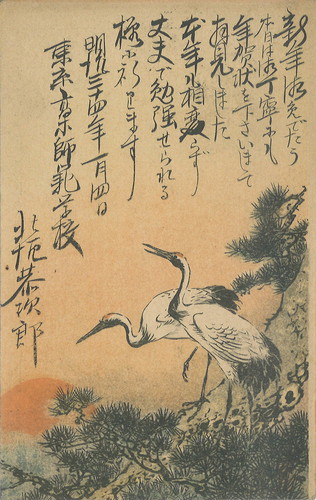 新年御目でたう
本日は御丁寧にも
年賀状を下さいまして
拝見しました
本年も相変らず
丈夫で勉強せられる
様に祈ります
明治三十四年一月四日
東京高等師範学校
北垣恭次郎